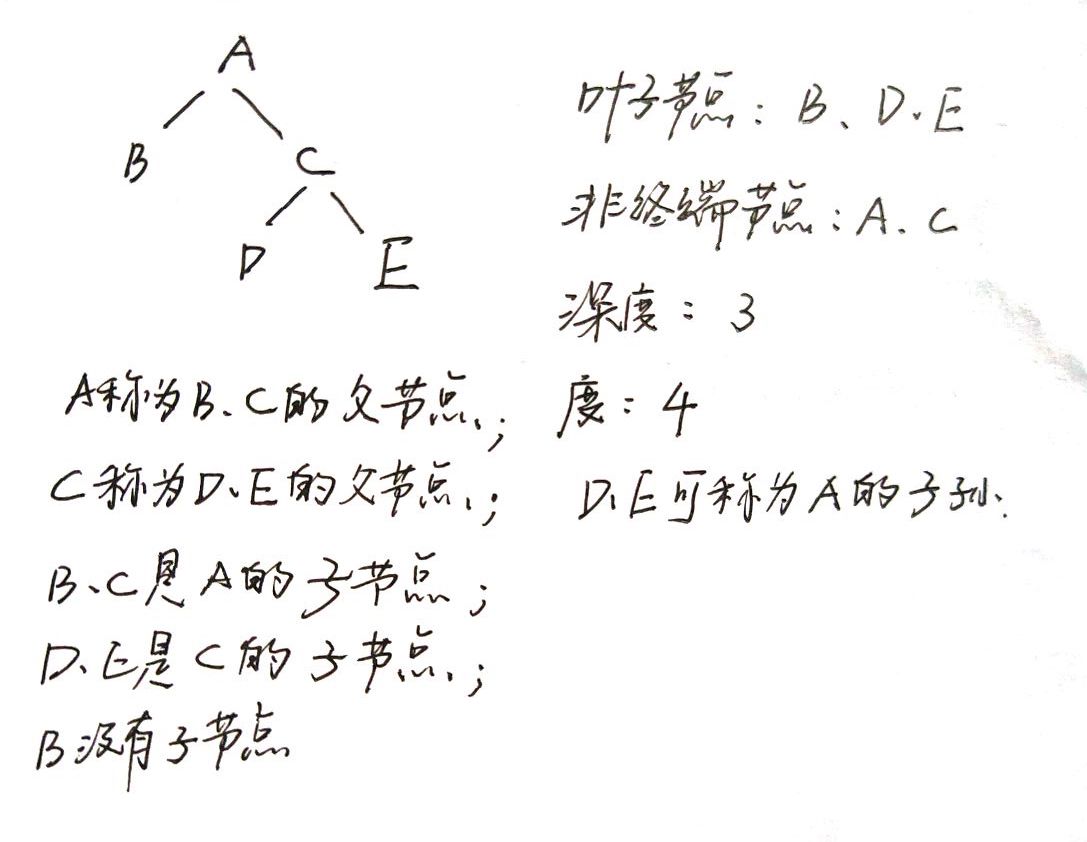 A
B C
D E
A称为B、C的父节点;
C称为D、E的父节点;
B、C是A的子节点;
D、E是C的子节点;
B没有子节点
叶子节点:B、D、E
非终端节点:A、C
深度:3
度:4
D、E可称为A的子孙.